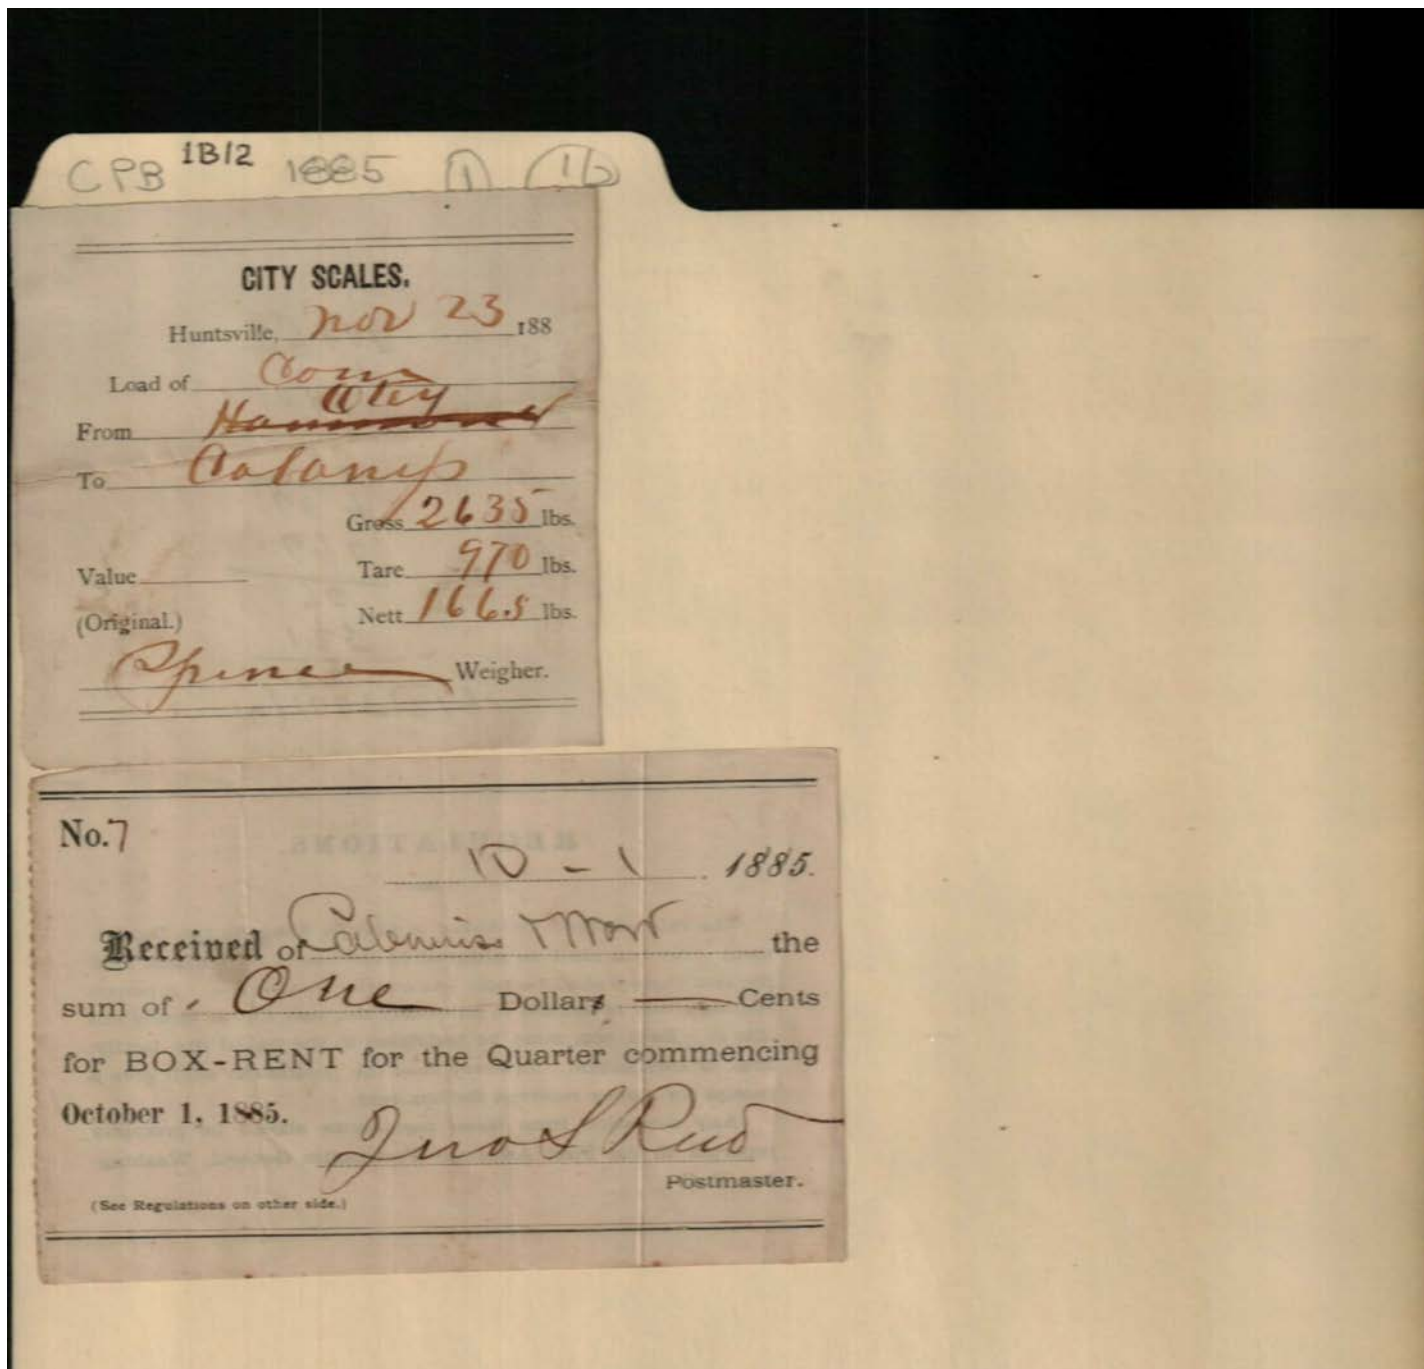 CPB 1B12 1885 1 16
CITY SCALES.
Huntsville, Nov 23 188
Load of Corn
Otey
From
To Cabanis
Gross 2635 lbs.
Value Tare 970 lbs.
(Original.) Nett 1665 lbs.
Spence Weigher.
No. 7
10 - 1 1885.
Received of Cabaniss the
sum of One Dollars — Cents
for BOX-RENT for the Quarter commencing
October 1, 1885.
Jno S Reed
Postmaster.
(See Regulations on other side.)